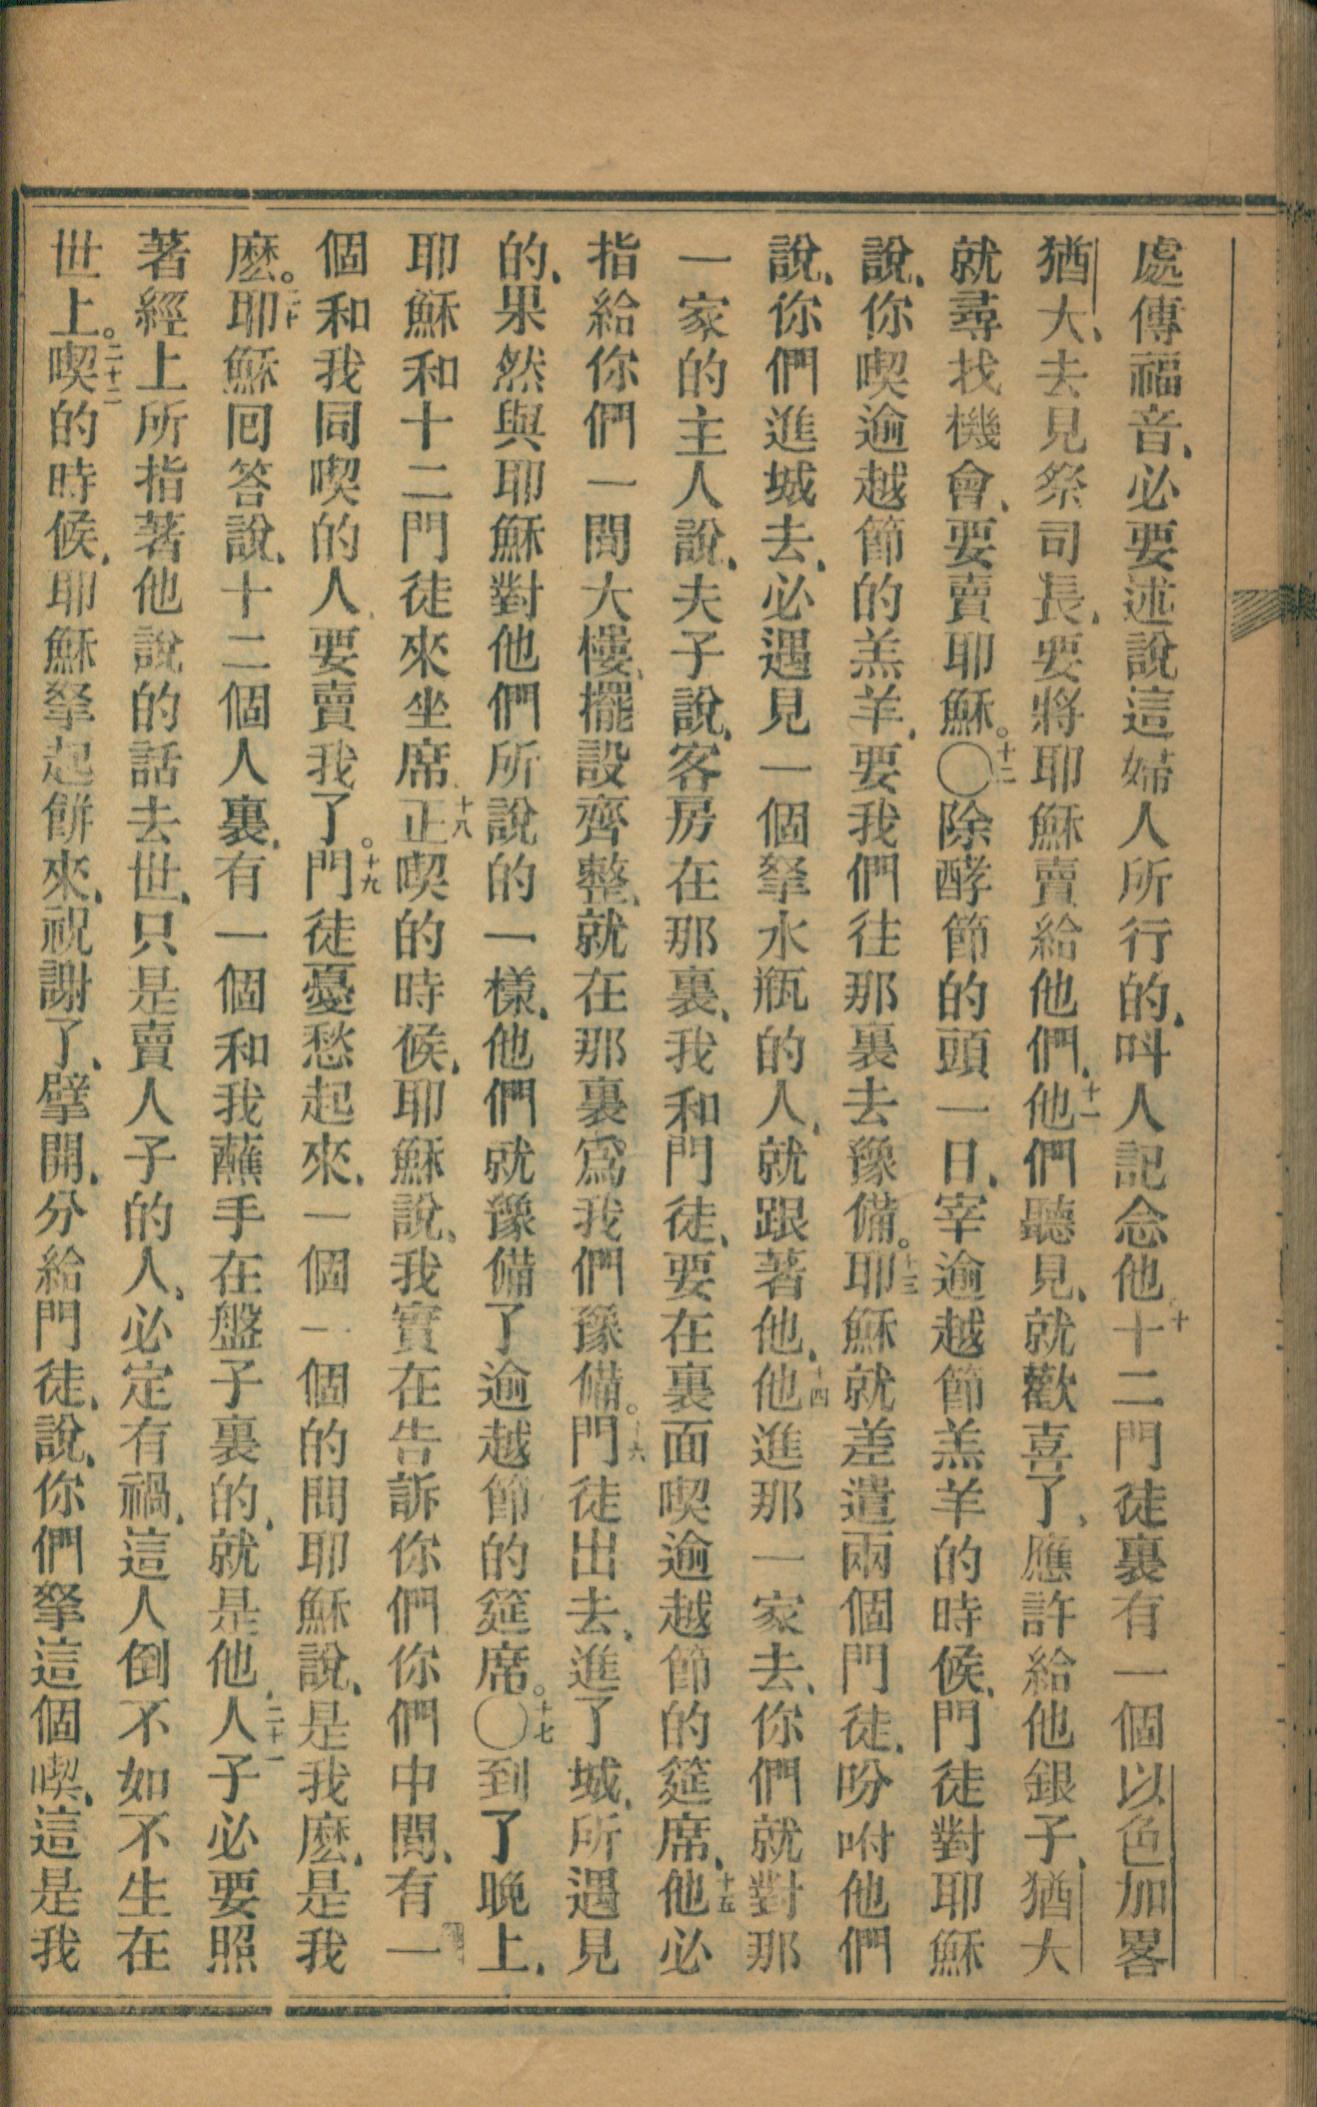 處傳福音、必要述說這婦人所行的、呌人記念他。十十二門徒裏有一個以色加畧
猶大、去見祭司長、要將耶穌賣給他們、十一他們聽見、就歡喜了、應許給他銀子、猶大
就尋找機會、要賣耶穌。十二〇除酵節的頭一日、宰逾越節羔羊的時候、門徒對耶穌
說、你喫逾越節的羔羊、要我們往那裏去豫備。十三耶穌就差遣兩個門徒、吩咐他們
說、你們進城去、必遇見一個拏水瓶的人、就跟著他、十四他進那一家去、你們就對那
一家的主人說、夫子說、客房在那裏、我和門徒、要在裏面喫逾越節的筵席、十五他必
指給你們一間大樓、擺設齊整、就在那裏爲我們豫備。十六門徒出去、進了城、所遇見
的、果然與耶穌對他們所說的一樣、他們就豫備了逾越節的筵席。十七〇到了晚上、
耶穌和十二門徒來坐席、十八正喫的時候、耶穌說、我實在告訴你們你們中間、有一
個和我同喫的人、要賣我了。十九門徒憂愁起來、一個一個的問耶穌說、是我麽、是我
麽。二十耶穌回答說、十二個人裏、有一個和我蘸手在盤子裏的、就是他、二十一人子必要照
著經上所指著他說的話去世、只是賣人子的人、必定有禍、這人倒不如不生在
世上。二十二喫的時候、耶穌拏起餅來、祝謝了、擘開、分給門徒、說、你們拏這個喫、這是我